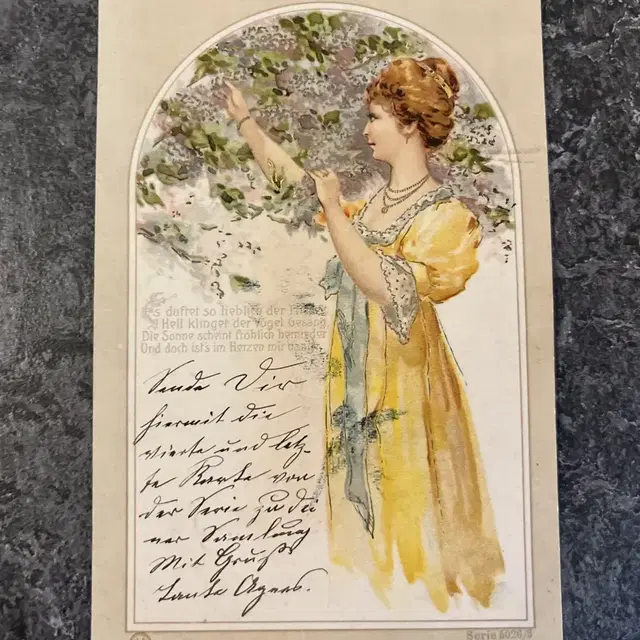 Es duftet so lieblich der Flieder
Hell klinget der Vögel Gesang,
Die Sonne scheint fröhlich hernieder
Und doch ist's im Herzen mir
Sende Dir
hiermit die
vierte und letz-
te Karte von
der Serie zu Dei
ner Samlung
Mit Gruß
Tante Agnes.
Serie 5026/3